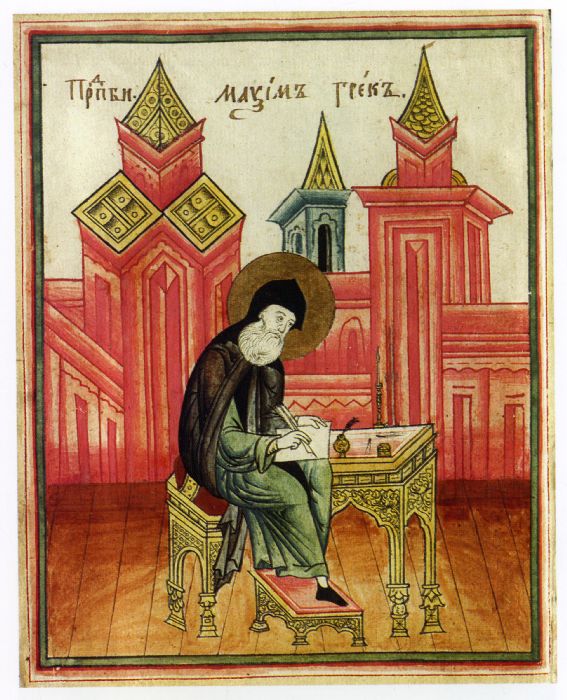 Прⷣпби. маѯімъ гре́къ.